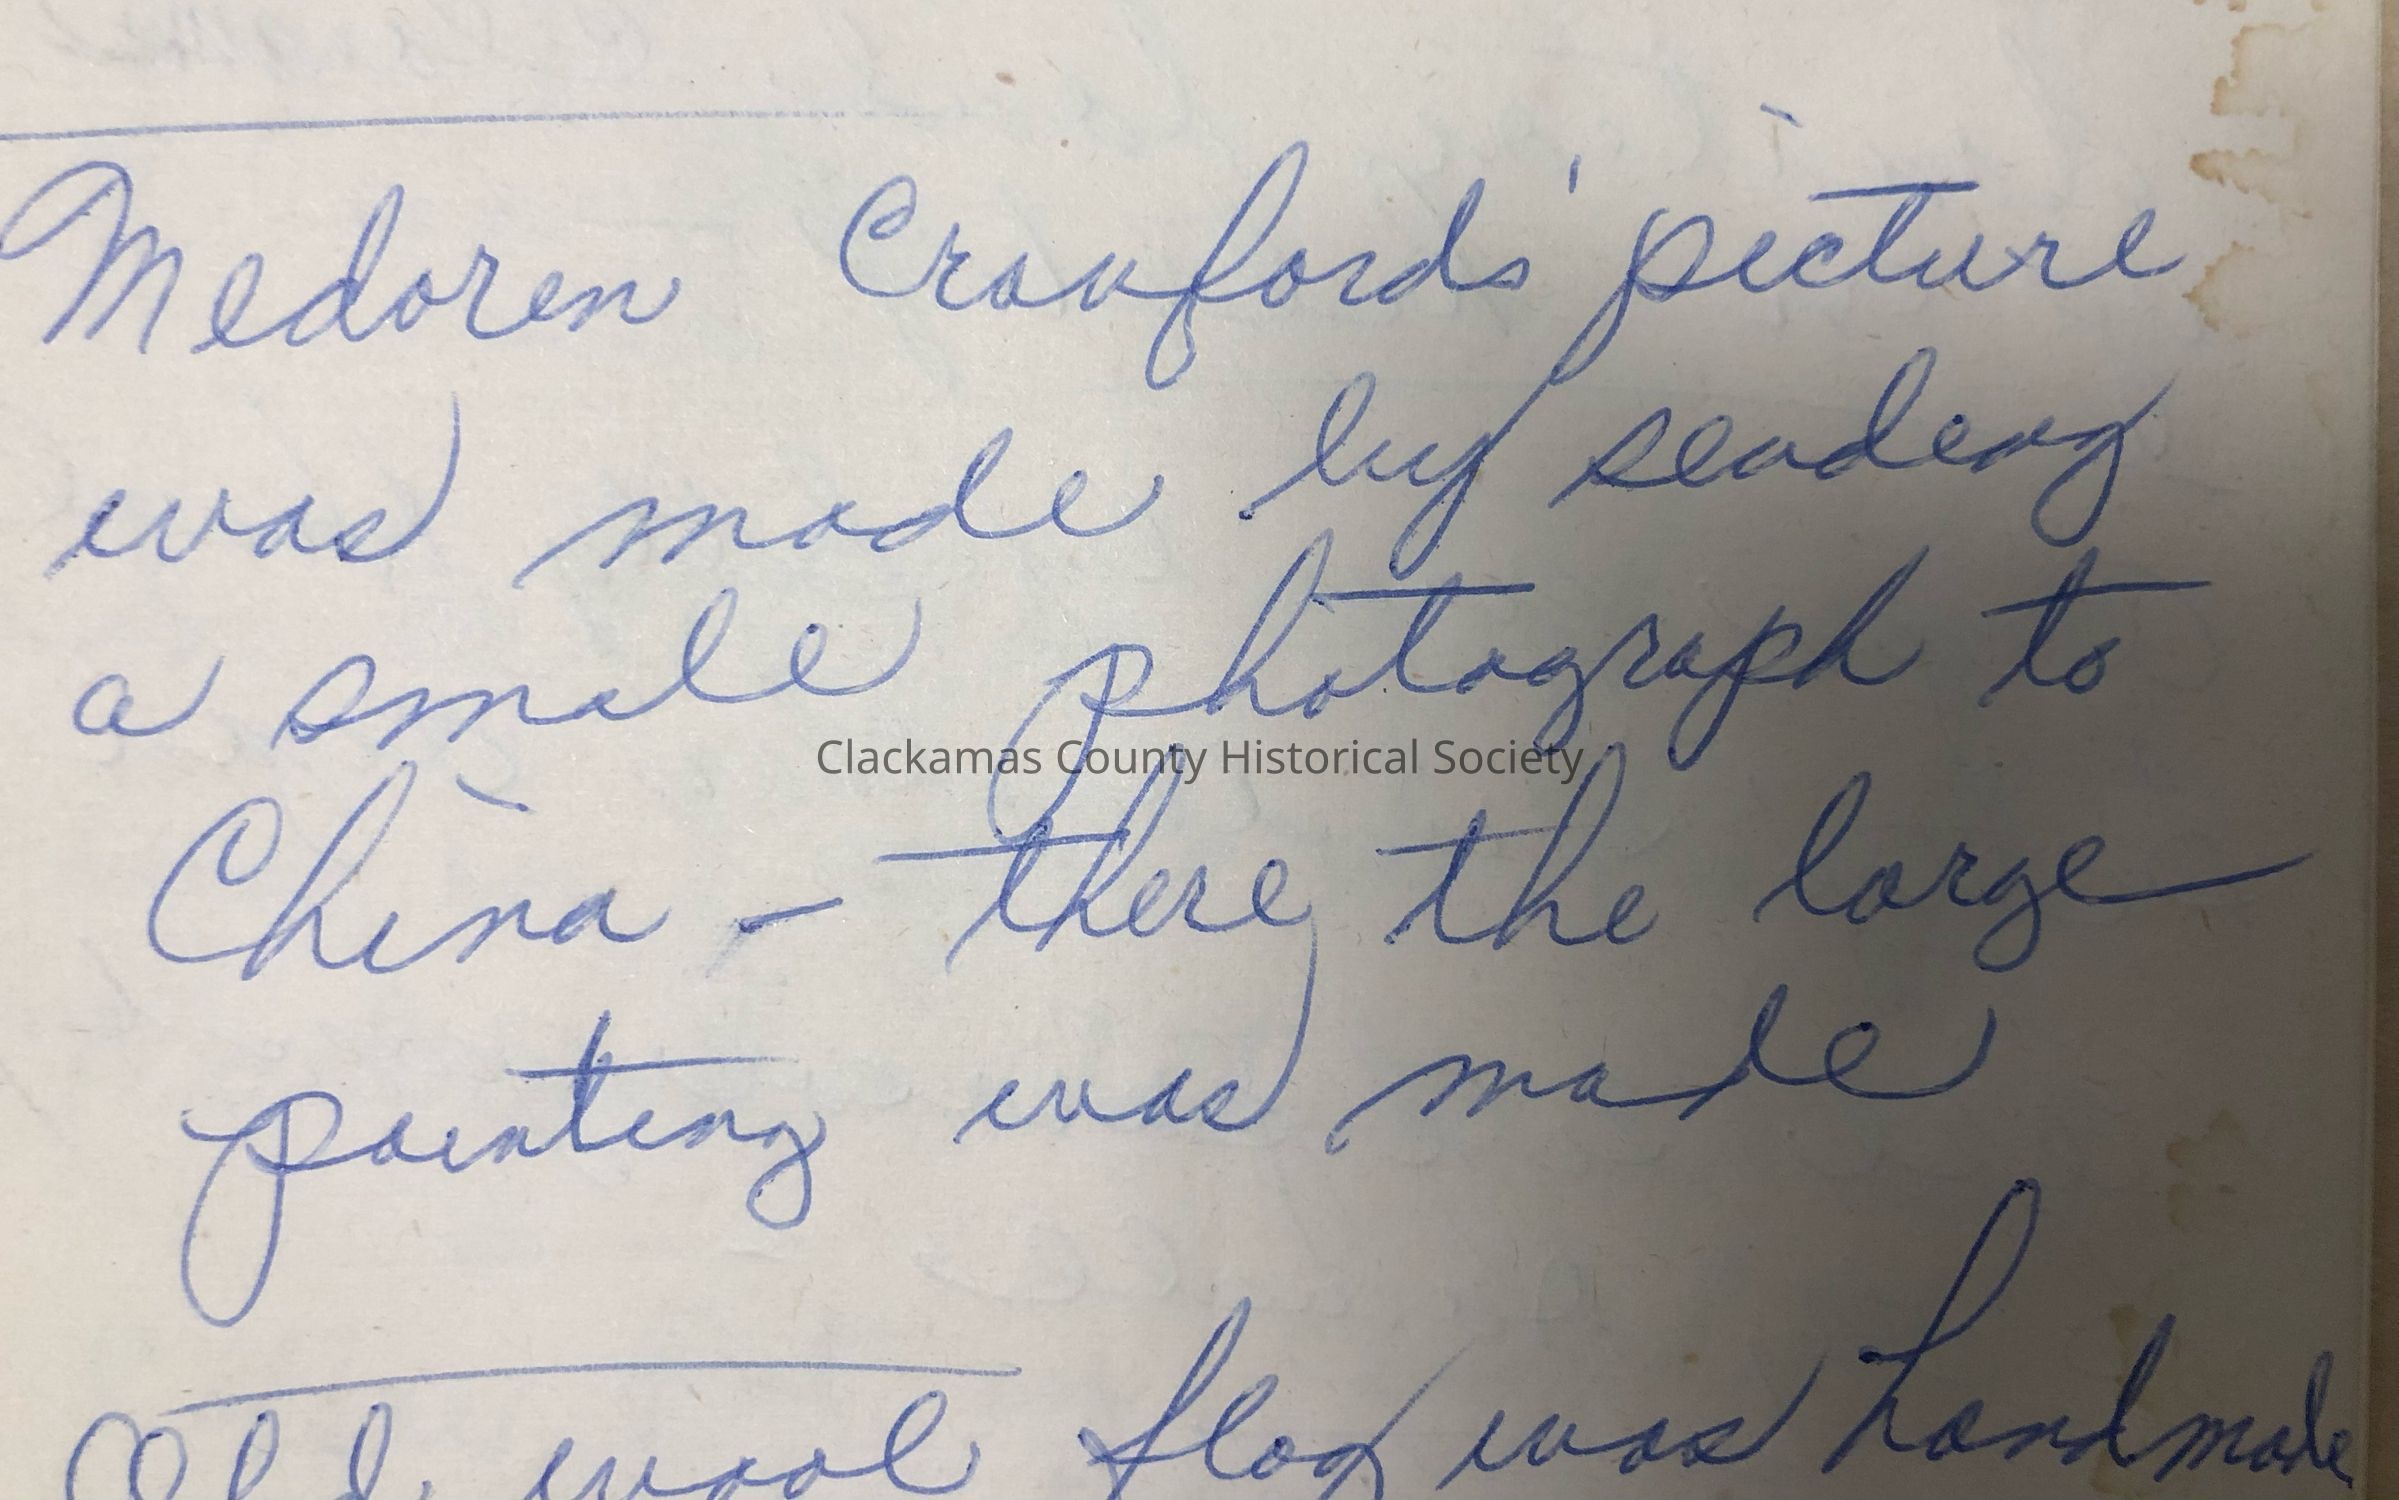 Medoren Crawford's picture
was made by sending
a small photograph to
Clackamas County Historical Society
China - there the large
painting was made
Old wool flag was handmade